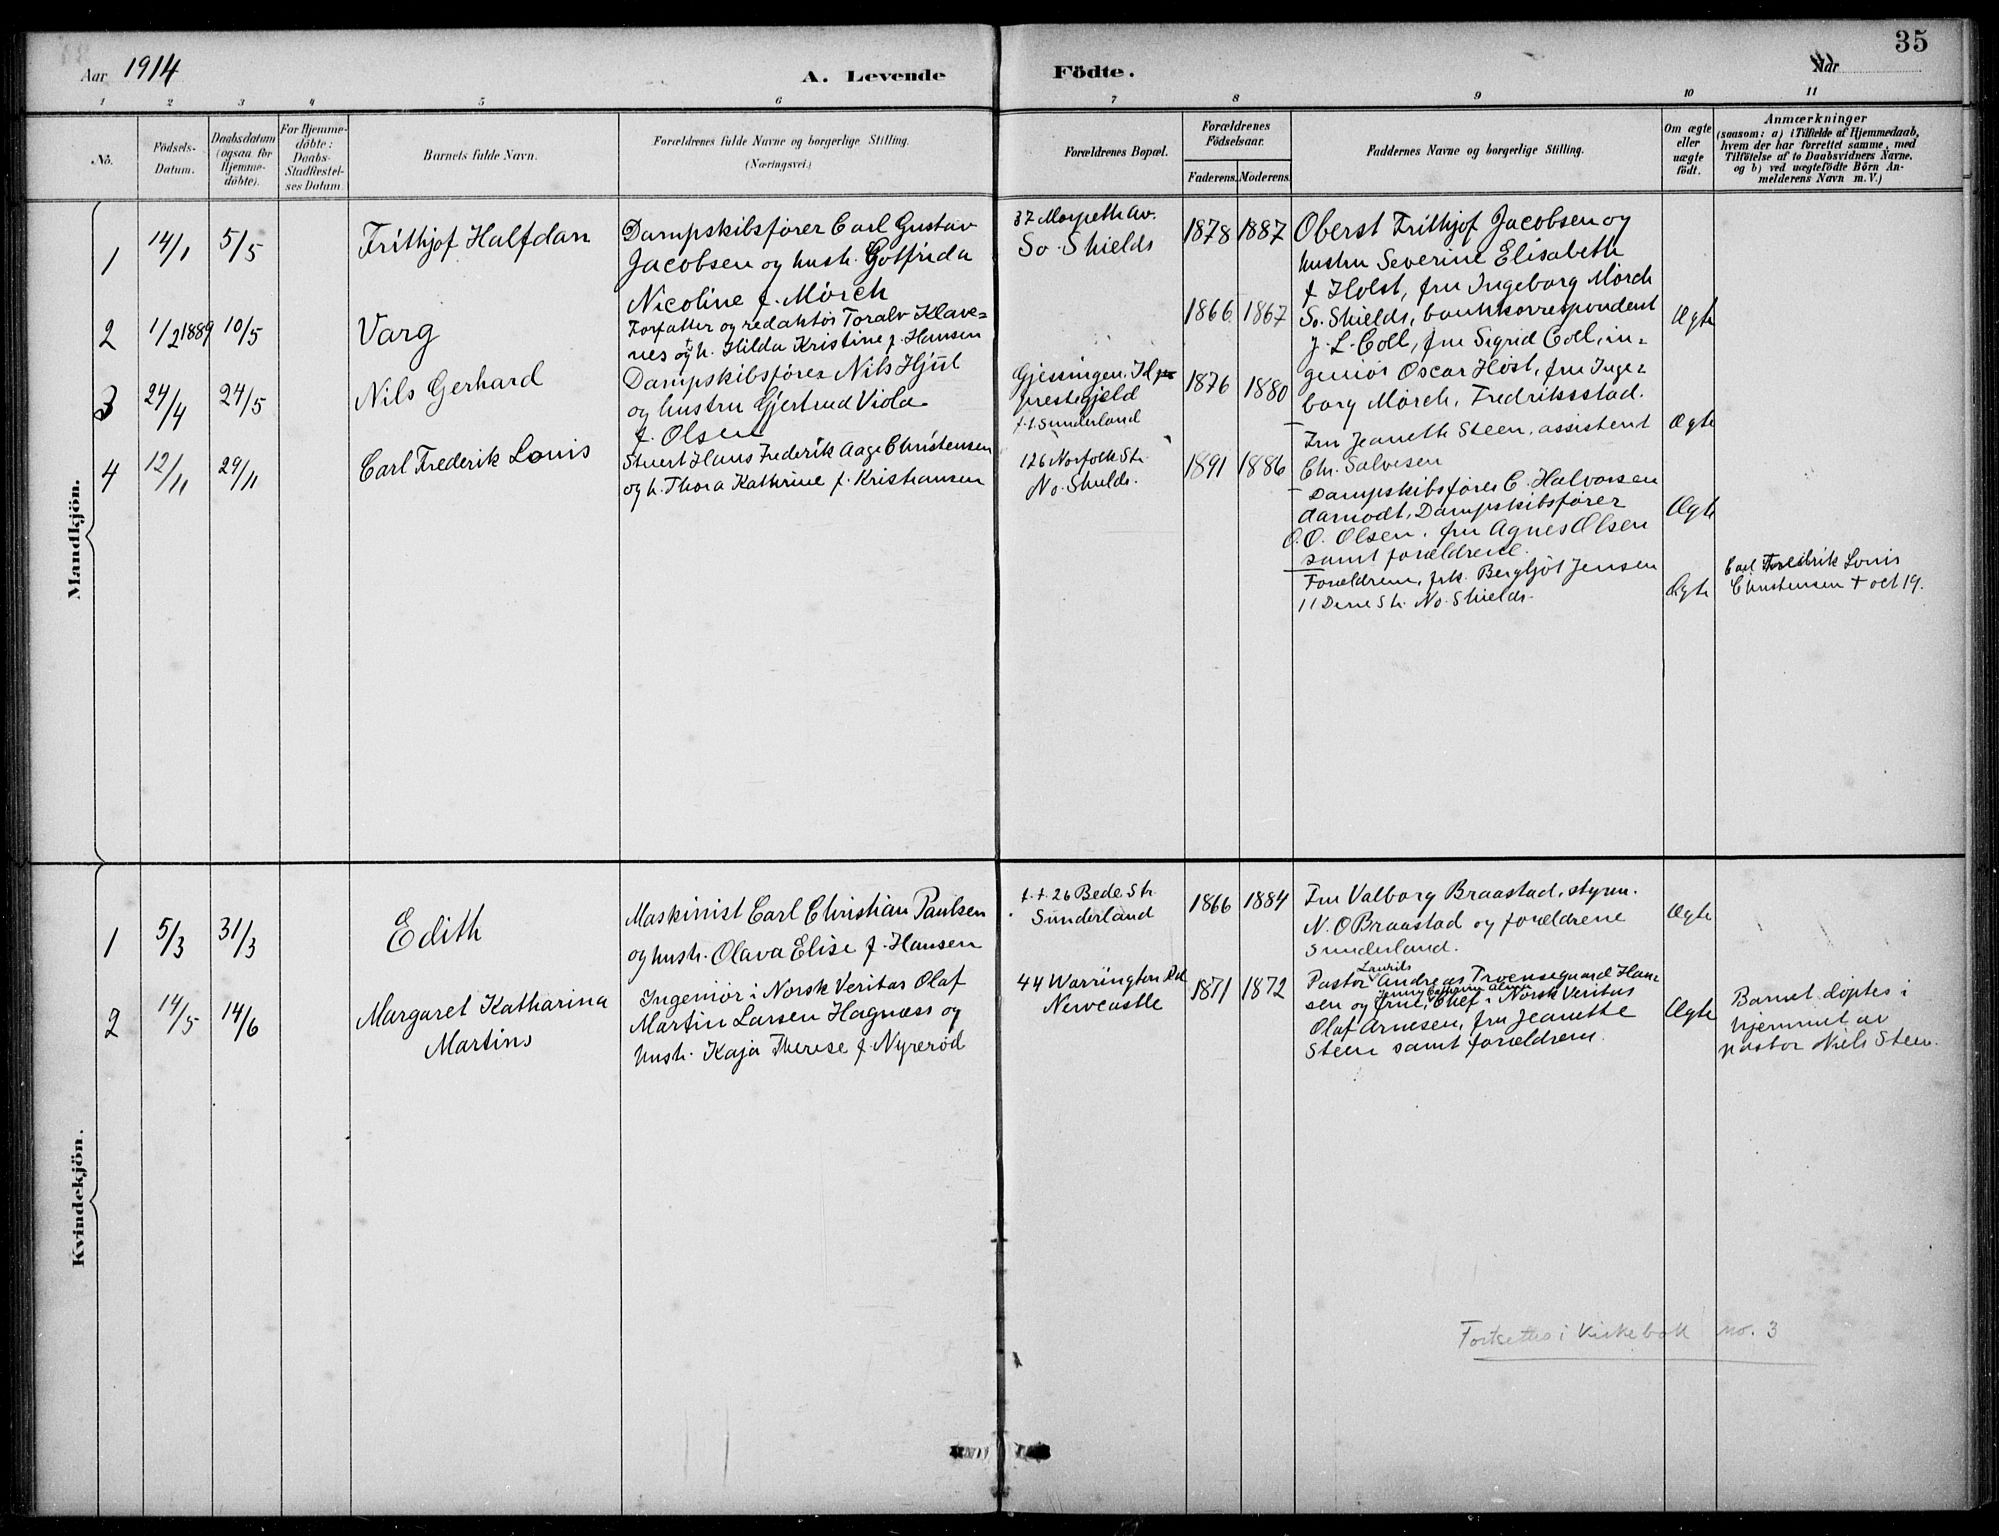 35
Aar 1914
A. Levende Födte.
Aar
1 2 3 4 5 6 7 8 9 10 11
No.
Födsels-Datum.
Daabsdatum (ogsaa for Hjemme-döbte).
For Hjemme-döbte: Daabs-Stadfæstel-ses Datum.
Barnets fulde Navn.
Forældrenes fulde Navne og borgerlige Stilling.
(Næringsvei.)
Forældrenes Bopæl.
Forældrenes Födselsaar.
Faderens. Moderens.
Faddernes Navne og borgerlige Stilling.
Om ægte eller uægte födt.
Anmærkninger
(saasom: a) i Tilfælde af Hjemmedaab,
hvem der har forrettet samme, med
Tilföielse af to Daabsvidners Navne,
og b) ved uægtefödte Börn An-
melderens Navn m. V.)
Mandkjön.
1 14/1 5/5 Frithjof Halfdan
Dampskibsfører Carl Gustav
Jacobsen og hustr. Gotfrida
Nicoline f. Mørch
37 Morpeth Av.
So. Shields
1878 1887
Oberst Frithjof Jacobsen og
hustru Severine Elisabeth
f Holst, fru Ingeborg Mørch
So. Shields, bankkorrespondent
J. L. Coll, fru Sigrid Coll, in-
geniør Oscar Høst, fru Inge-
borg Mørch, Fredriksstad.
Ægte
2 1/2 1889 10/5 Varg
Forfatter og redaktør Toralv Klave-
nes og h. Hilda Kristine f. Hansen
1866 1867
Fru Jeanette Steen, assistent
Chr. Salvesen
Ægte
3 24/4 24/5 Nils Gerhard
Dampskibsfører Nils Hjul
og hustru Gjertrud Viola
f. Olsen
Gjessingen,
prestegjeld
f. t. Sunderland
1876 1880
Dampskibsfører C. Halvorsen
Aamodt, Dampskibsfører
O. O. Olsen, fru Agnes Olsen
samt forældrene.
Ægte
4 12/11 29/11 Carl Frederik Louis
Stuert Hans Frederik Aage Christensen
og h. Thora Kathrine f. Kristiansen
126 Norfolk Str.
No. Shields.
1891 1886
Forældrene, frk. Bergljot Jensen
11 Dene Str. No. Shields.
Ægte
Carl Fredrik Louis
Christensen + oct 19.
Kvindekjön.
1 5/3 31/3 Edith
Maskinist Carl Christian Paulsen
og hustr. Olava Elise f. Hansen
f. t. 26 Bede Str
Sunderland
1866 1884
Fru Valborg Braastad, styrm.
N. O Braastad og forældrene
Sunderland.
Ægte
2 14/5 14/6 Margaret Katharina
Martins
Ingeniør i Norsk Veritas Olaf
Martin Larsen Hagnæss og
hustr. Kaja Therese f. Nyrerød
44 Warrington Rd
Newcastle
1871 1872
Laurits
Pastor Andreas Troensegaard Han-
sen og frue, Chef i Norsk Veritas
Olaf Arnesen, fru Jeanette
Steen samt forældrene.
Ægte
Barnet døptes i
hjemmet av
pastor Niels Steen.
Fortsettes i kirkebok no. 3